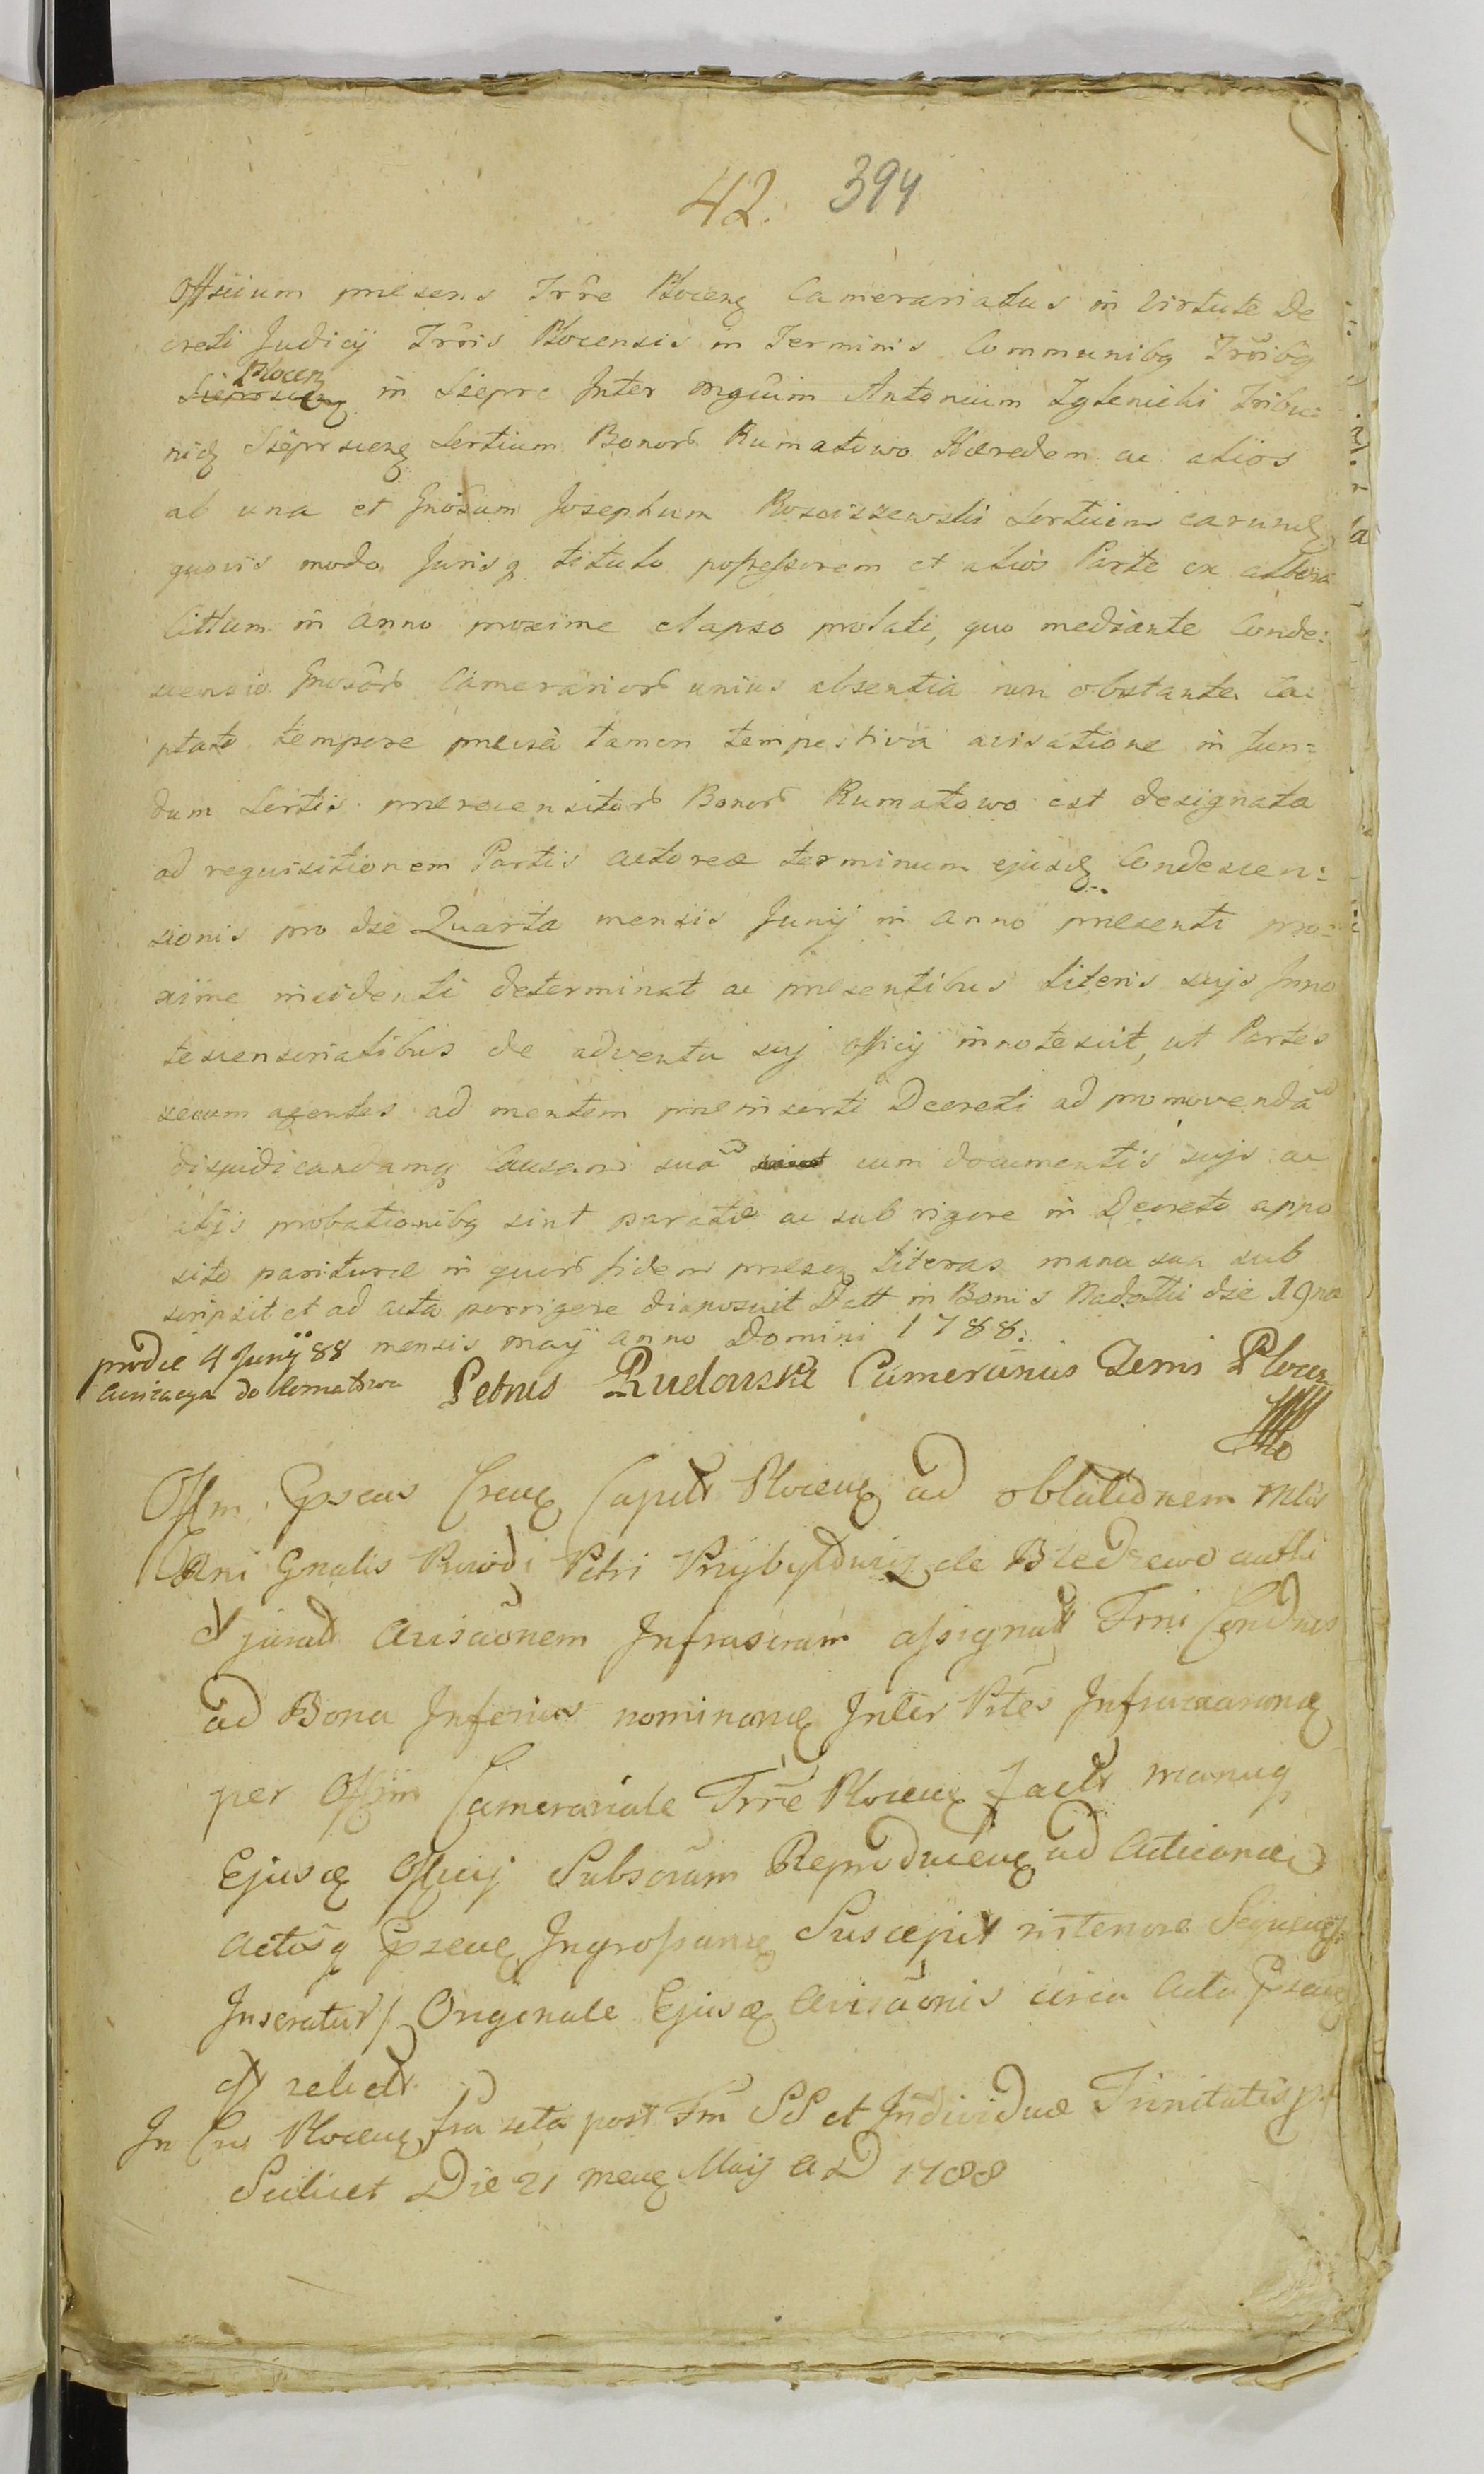 42. 394
Officium presens Trre Plocenꝫ Camerariatus in Virtute De
creti Judicij Trris Plocensis in Terminis Communibꝫ Trribꝫ
Plocenꝫ
in Sieprc Inter Mgcum Antonium Zglenicki Tribu:
niꝫ Sieprscenꝫ Sortium Bonorꝫ Kumatowo Hæredem ac alios
ab una et Gnosum Josephum Rosciszewski Sortium earundꝫ
quovis modo Jurisqꝫ titulo possessorem et alios Parte ex altera
Cittum in anno proxime elapso prolati, quo mediante Conde:
scensio Gnosorꝫ Camerariorꝫ unius absentia non obstante Ca:
ptato tempore prævia tamen tempestiva avisatione in fun:
dum Sortis prærecensitarꝫ Bonorꝫ Kumatowo est designata
ad requisitionem Partis actoreæ terminum ejusdꝫ Condescen:
sionis pro die Quarta mensis Junij in anno præsenti pro:
xime incidenti determinat ac præsentibus Literis suis Inno
tescensorialibus de adventu suj Officij innotescit, ut Partes
secum agentes ad mentem præinserti Decreti ad promovendã
dijudicandamqꝫ Causam suã cum documentis suis ac
alijs probationibꝫ sint paratæ ac sub rigore in Decreto appo
sito parituræ in quorꝫ fidem præsenꝫ Literas manu sua sub
scripsit et ad acta porrigere disposuit Datt in Bonis Nadolki die 19na
mensis maij anno Domini 1788.
pro die 4 Junij 88
Awizacya do Komatowa
Petrus Rudowski Camerarius Terris Plocen
Offm Epseus Creuꝫ Capitt Plocenꝫ ad oblationem Mlis
Rni Gnalis Petri Przybyłowicz de Bledzewo authi
et jurati Avisaõnem Infrascram assignatt Trni Condnis
ad Bona Inferius nominanꝫ Inter Ptes Infrascr
per Offim Camerariale Trræ Plocenꝫ fact manuqꝫ
Ejusdꝫ Officij Subscram Reproducenꝫ ad Acticandꝫ
Actisqꝫ Ingrossandꝫ Suscepit tenore Sequen
Inseratur/ Originale Ejusdꝫ Avisaõnis circa Acta
est relict
In Plocenꝫ fria post Fm SS et Individuæ Trinitatis
Scilicet Die 21 menꝫ Maij A D 1788